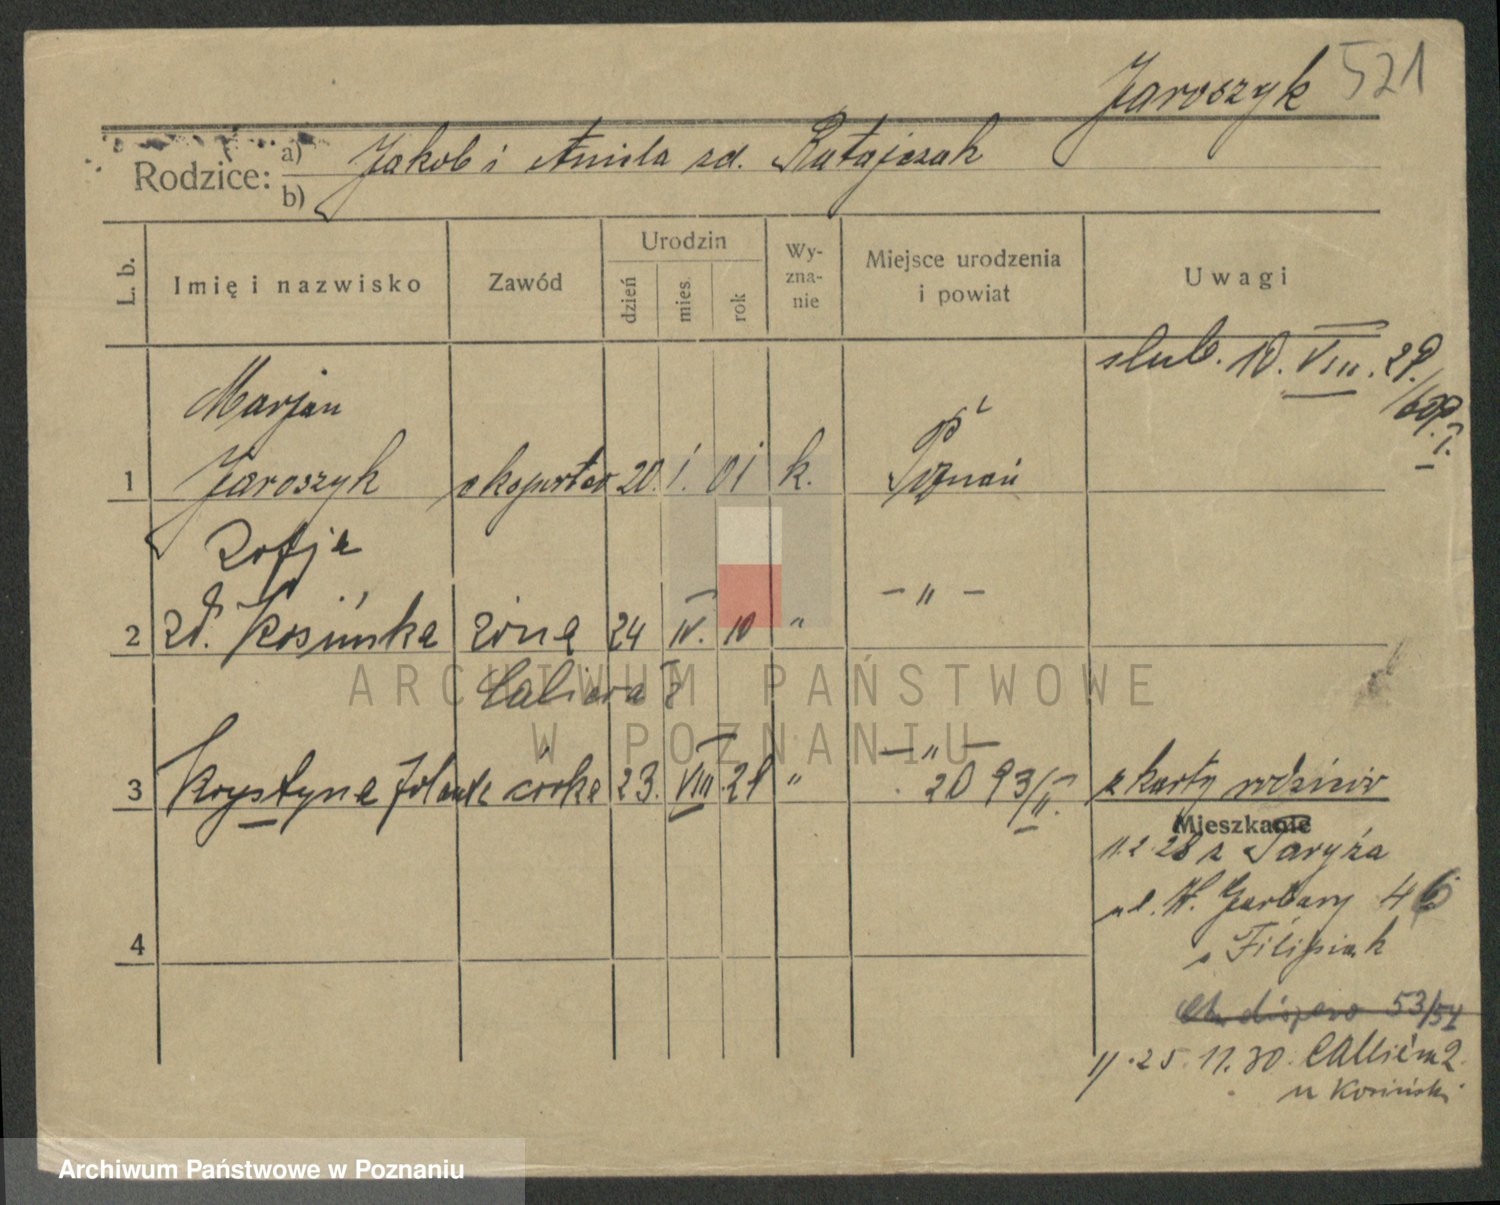 Jaroszyk 521
Rodzice: a) b) Jakob i Aniela zd. Ratajczak
L. b. Imię i nazwisko Zawód Urodzin dzień mies. rok Wy-zna-nie Miejsce urodzenia i powiat Uwagi
slub. 10. VIII. 29.
Marjan
1 Jaroszyk 20. I. 01 k. Poznań
Zofja
2 zd. Kosińska żona 24 IV. 10 " — " —
— " —
3 Krystyna Jolanta córka 23. VIII. 29 " 2093/II. z karty rodziców
Mieszkanie
11.2.28 z Paryża
ul. W. Garbary 46
Filipiak
4
53/54
25.11.30. Calliera 2
u Kosiński
ARCHIWUM PAŃSTWOWE
W POZNANIU
Archiwum Państwowe w Poznaniu